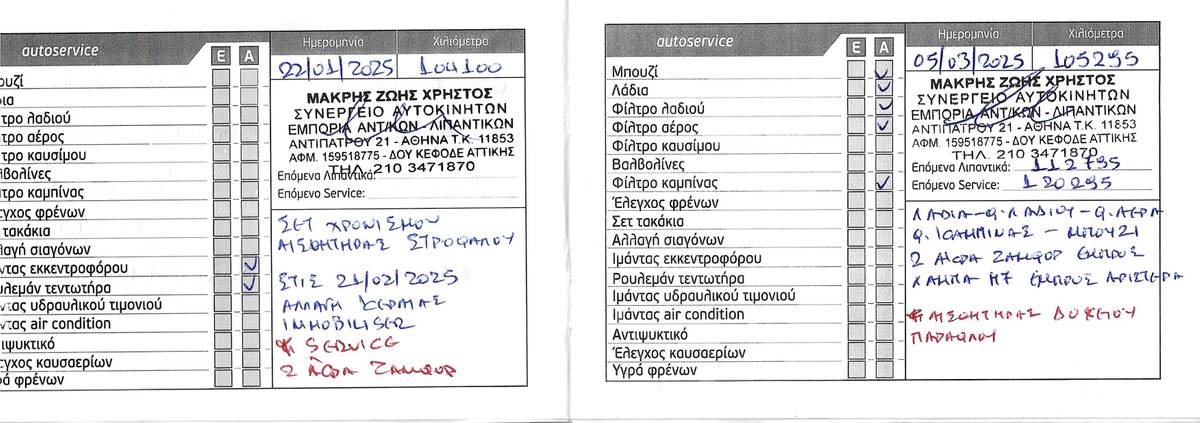 autoservice Ε Α
Ημερομηνία Χιλιόμετρα
22/01/2025 104100
ουζί
ια
τρο λαδιού
τρο αέρος
τρο καυσίμου
λβολίνες
τρο καμπίνας
εγχος φρένων
τακάκια
λαγή σιαγόνων
άντας εκκεντροφόρου
υλεμάν τεντωτήρα
ντας υδραυλικού τιμονιού
ντας air condition
τιψυκτικό
εγχος καυσαερίων
ρά φρένων
ΜΑΚΡΗΣ ΖΩΗΣ ΧΡΗΣΤΟΣ
ΣΥΝΕΡΓΕΙΟ ΑΥΤΟΚΙΝΗΤΩΝ
ΕΜΠΟΡΙΑ ΑΝΤ/ΚΩΝ - ΛΙΠΑΝΤΙΚΩΝ
ΑΝΤΙΠΑΤΡΟΥ 21 - ΑΘΗΝΑ Τ.Κ. 11853
ΑΦΜ. 159518775 - ΔΟΥ ΚΕΦΟΔΕ ΑΤΤΙΚΗΣ
ΤΗΛ. 210 3471870
Επόμενα Λιπαντικά:
Επόμενο Service:
ΣΕΤ ΧΡΟΝΙΣΜΟΥ
ΑΙΣΘΗΤΗΡΑΣ ΣΤΡΟΦΑΛΟΥ
ΣΤΙΣ 21/02/2025
ΑΛΛΑΓΗ ΚΕΡΑΙΑΣ
IMMOBILISER
* SERVICE
2 ΑΚΡΑ ΖΑΜΦΟΡ
autoservice Ε Α
Ημερομηνία Χιλιόμετρα
05/03/2025 105295
Μπουζί
Λάδια
Φίλτρο λαδιού
Φίλτρο αέρος
Φίλτρο καυσίμου
Βαλβολίνες
Φίλτρο καμπίνας
Έλεγχος φρένων
Σετ τακάκια
Αλλαγή σιαγόνων
Ιμάντας εκκεντροφόρου
Ρουλεμάν τεντωτήρα
Ιμάντας υδραυλικού τιμονιού
Ιμάντας air condition
Αντιψυκτικό
Έλεγχος καυσαερίων
Υγρά φρένων
ΜΑΚΡΗΣ ΖΩΗΣ ΧΡΗΣΤΟΣ
ΣΥΝΕΡΓΕΙΟ ΑΥΤΟΚΙΝΗΤΩΝ
ΕΜΠΟΡΙΑ ΑΝΤ/ΚΩΝ - ΛΙΠΑΝΤΙΚΩΝ
ΑΝΤΙΠΑΤΡΟΥ 21 - ΑΘΗΝΑ Τ.Κ. 11853
ΑΦΜ. 159518775 - ΔΟΥ ΚΕΦΟΔΕ ΑΤΤΙΚΗΣ
ΤΗΛ. 210 3471870
Επόμενα Λιπαντικά: 112795
Επόμενο Service: 120295
ΛΑΔΙΑ - Φ. ΛΑΔΙΟΥ - Φ. ΑΕΡΑ
Φ. ΚΑΜΠΙΝΑΣ - ΜΠΟΥΖΙ
2 ΑΚΡΑ ΖΑΜΦΟΡ ΕΜΠΡΟΣ
ΛΑΜΠΑ Η7 ΕΜΠΡΟΣ ΑΡΙΣΤΕΡΑ
* ΑΙΣΘΗΤΗΡΑΣ ΔΟΧΕΙΟΥ
ΠΑΡΑΦΛΟΥ